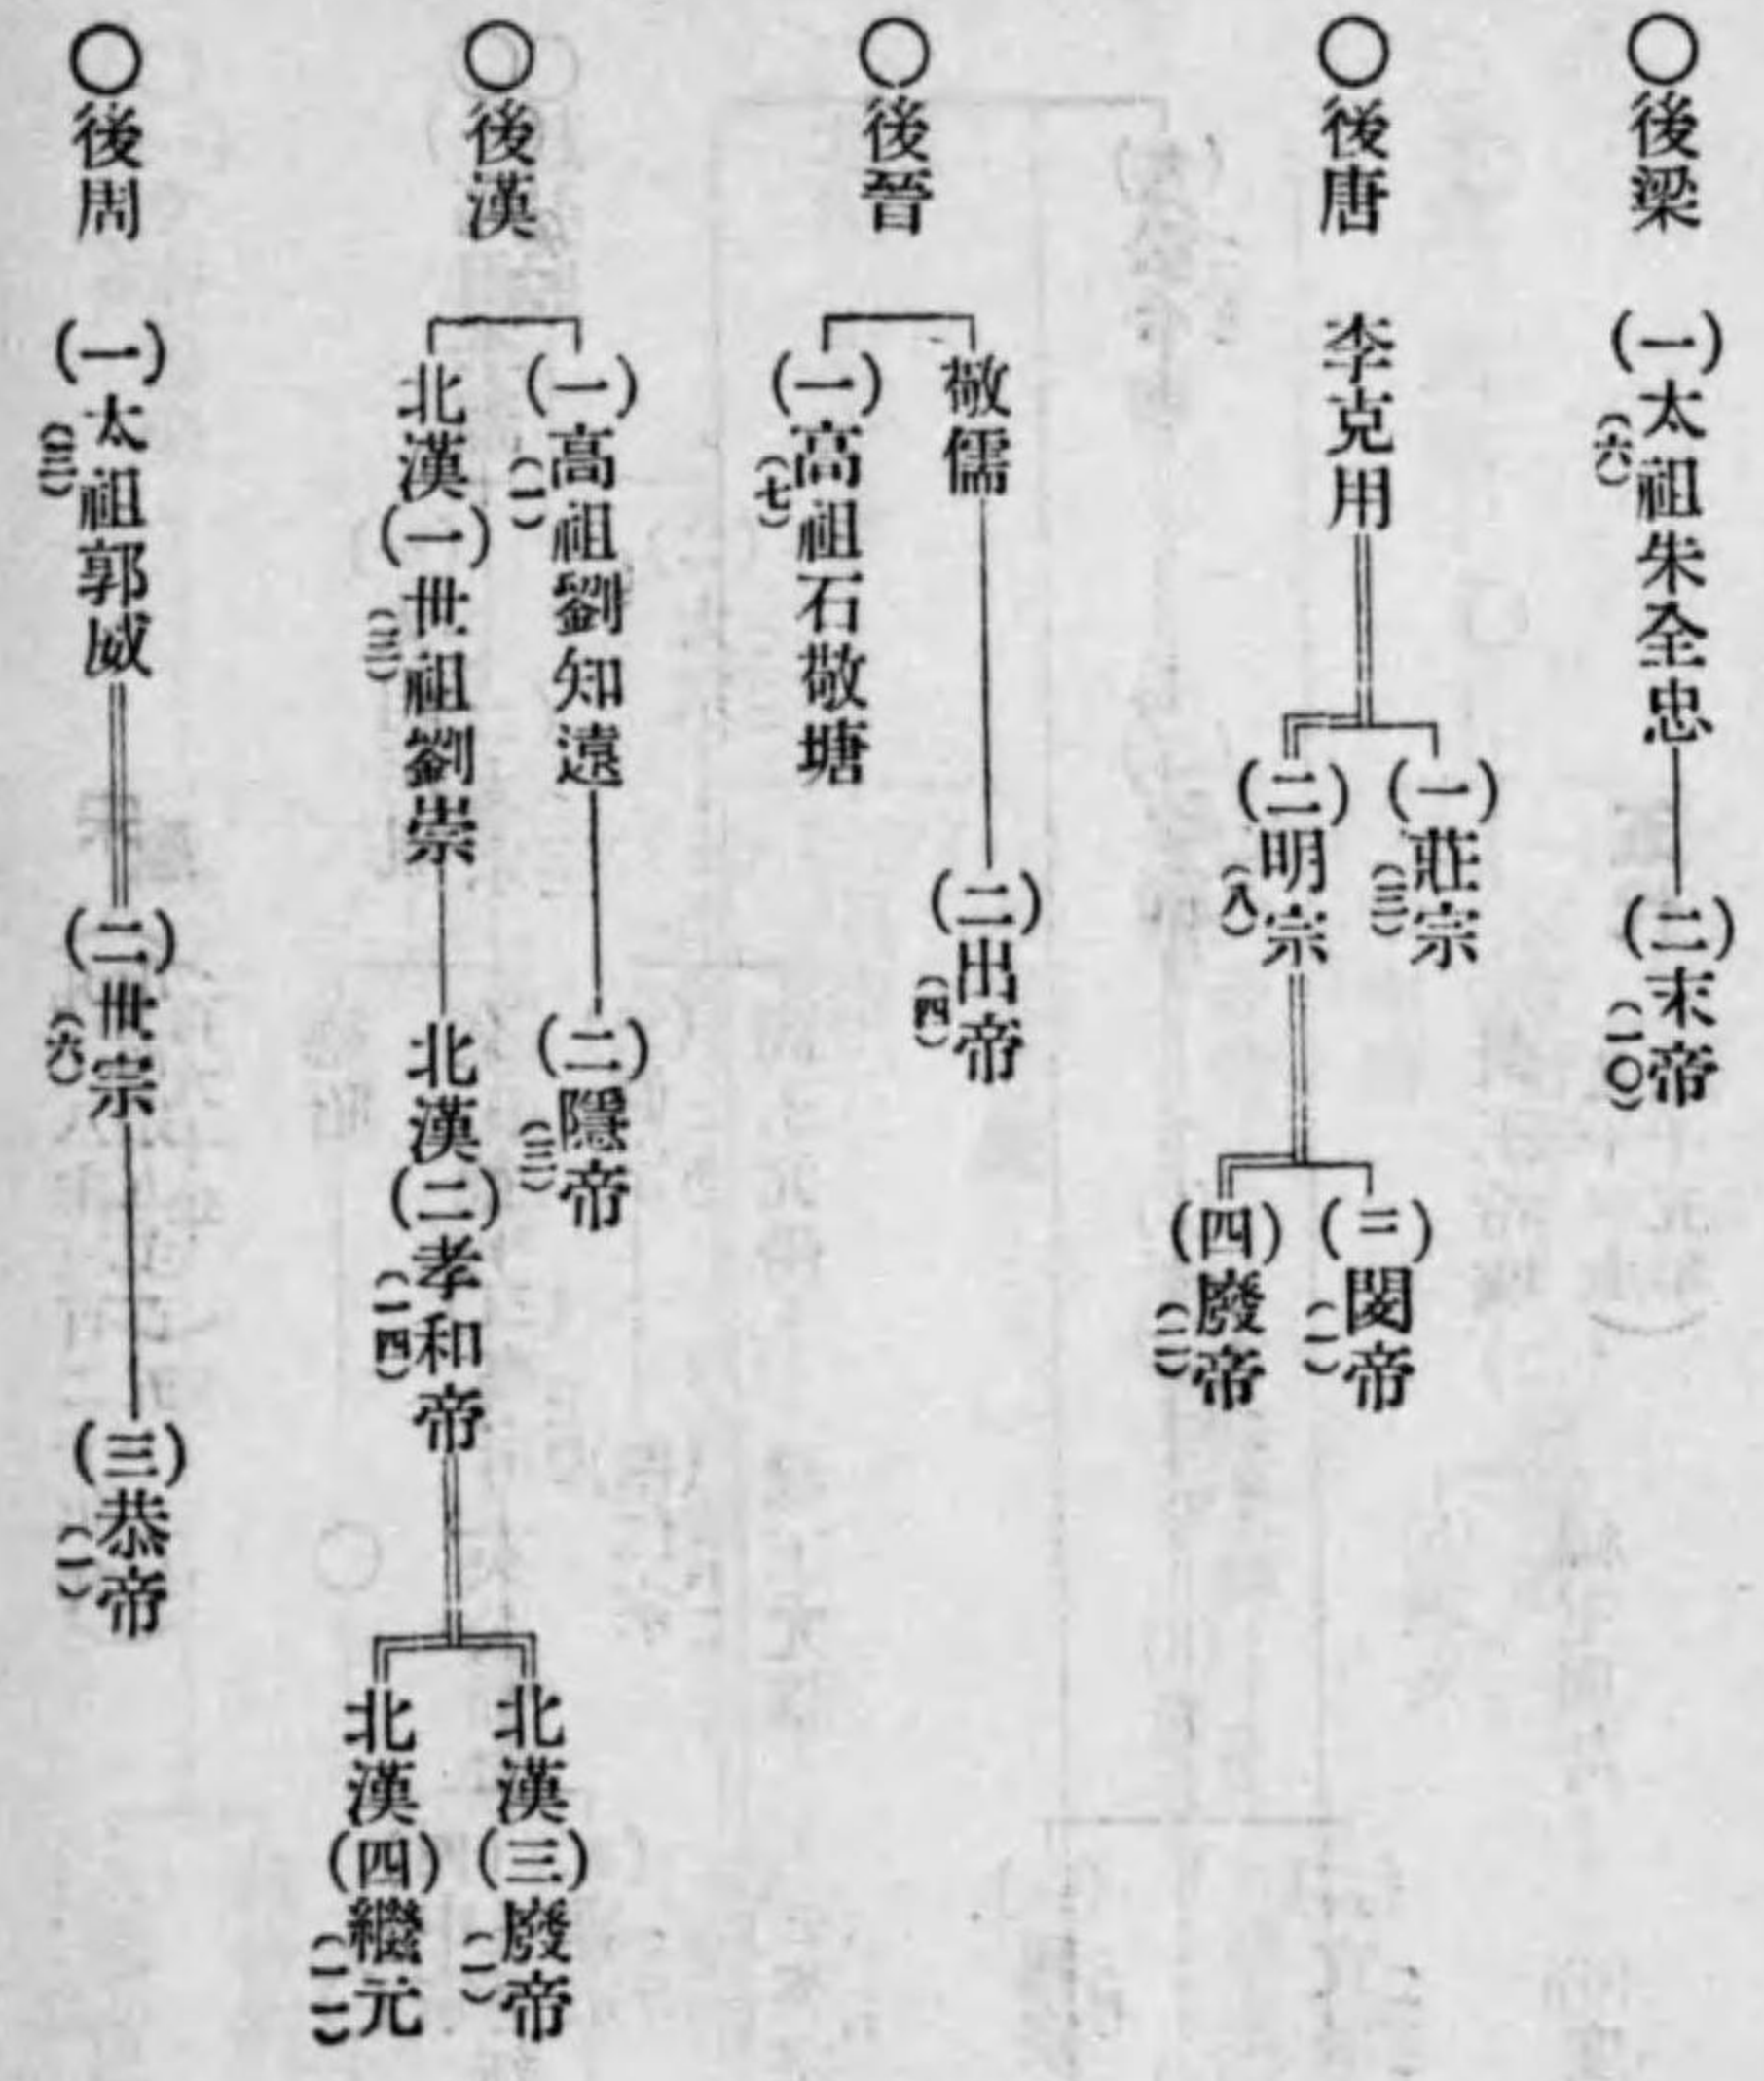 ○後梁
(一)太祖朱全忠
(六)
(二)末帝
(一〇)
○後唐
李克用
(一)莊宗
(三)
(二)明宗
(八)
(三)閔帝
(一)
(四)廢帝
(二)
○後晉
敬儒
(二)出帝
(四)
(一)高祖石敬塘
(七)
○後漢
(一)高祖劉知遠
(一)
(二)隱帝
(三)
北漢(一)世祖劉崇
(三)
北漢(二)孝和帝
(一四)
北漢(三)廢帝
(一)
北漢(四)繼元
(一一)
○後周
(一)太祖郭威
(三)
(二)世宗
(六)
(三)恭帝
(一)